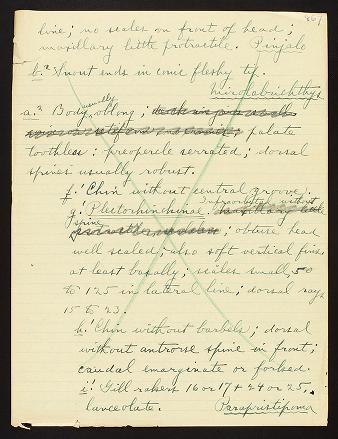 line; no scales on front of head;
maxillary little protractile. Pinjalo
b.² Snout ends in conic fleshy tip.
Microlabrichthys
a.² Body usually oblong;
palate
toothless; preopercle serrated; dorsal
spines usually robust.
f.' Chin without central groove).
g.' Plectorhinchinae. Infraorbital without
spine; obtuse head
well scaled; also soft vertical fins,
at least basally; scales small, 50
to 125 in lateral line; dorsal rays
15 to 23.
h.' Chin without barbels; dorsal
without antrorse spine in front;
caudal emarginate or forked.
i.' Gill rakers 16 or 17 + 24 or 25,
lanceolate. Parapristipoma